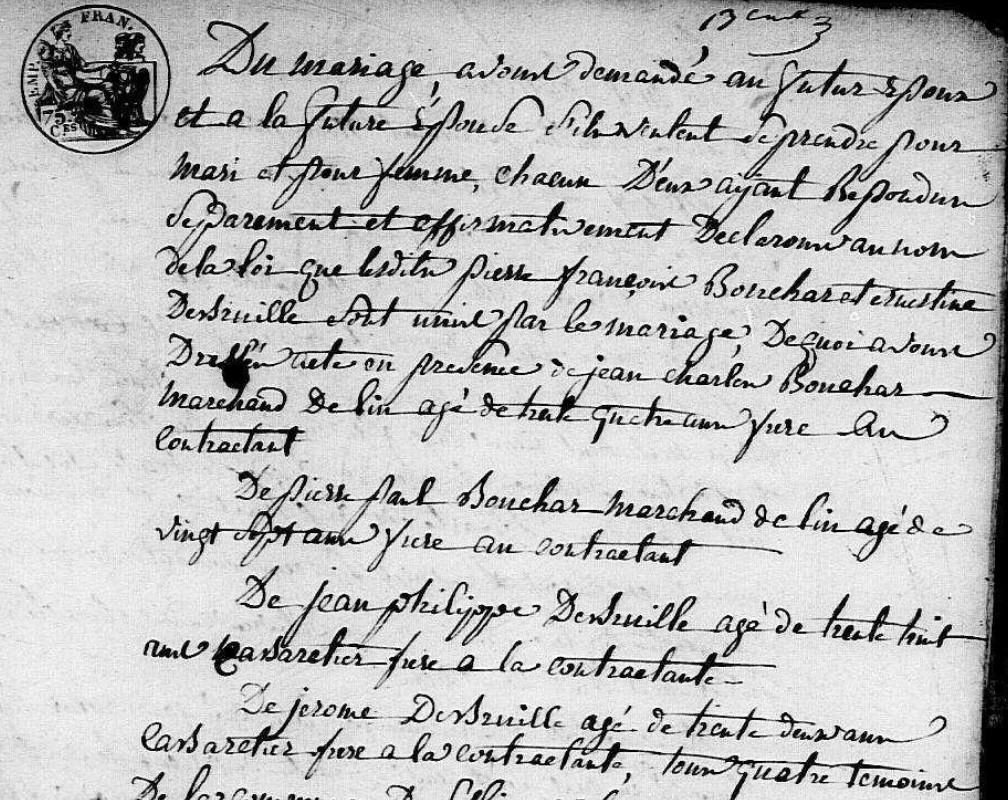 13 cent
EMP. FRAN.
75
Ces
Du mariage, avons demandé au futur Epoux
et a la future Epouse s'ils veulent se prendre pour
mari et pour femme, chacun D'eux ayant Repondu
separement et affirmativement Declarons au nom
de la loi que lesdits pierre françois Bouchar et ernestine
sont unis par le mariage, De quoi avons
Dressés acte en presence de jean charles Bouchar
marchand De lin agé de trente quatre ans frere au
contractant
De pierre paul Bouchar marchand de lin agé de
vingt sept ans frere au contractant
De jean philippe agé de trente huit
ans Cabaretier frere a la contractante
De jerome agé de trente deux ans
Cabaretier frere a la contractante, tous quatre temoins